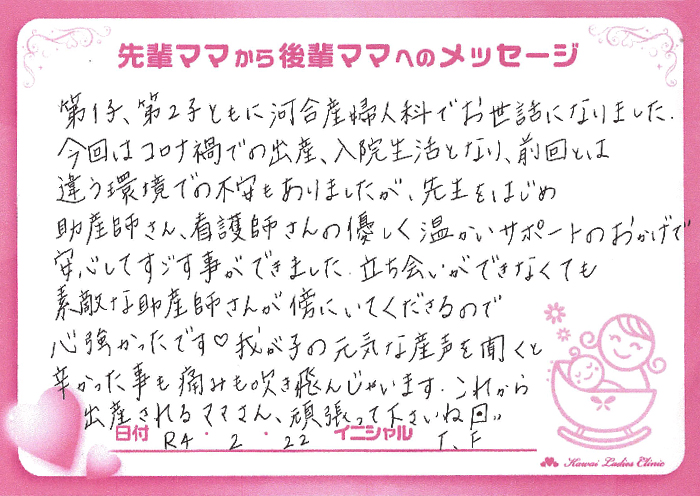 先輩ママから後輩ママへのメッセージ
第1子、第2子ともに河合産婦人科でお世話になりました.
今回はコロナ禍での出産、入院生活となり、前回とは
違う環境での不安もありましたが、先生をはじめ
助産師さん、看護師さんの優しく温かいサポートのおかげで
安心してすごす事ができました. 立ち会いができなくても
素敵な助産師さんが傍にいてくださるので
心強かったです♡ 我が子の元気な産声を聞くと
辛かった事も痛みも吹き飛んじゃいます. これから
出産されるママさん、頑張って下さいね
日付 R4 ・ 2 ・ 22 イニシャル T、F
Kawai Ladies Clinic